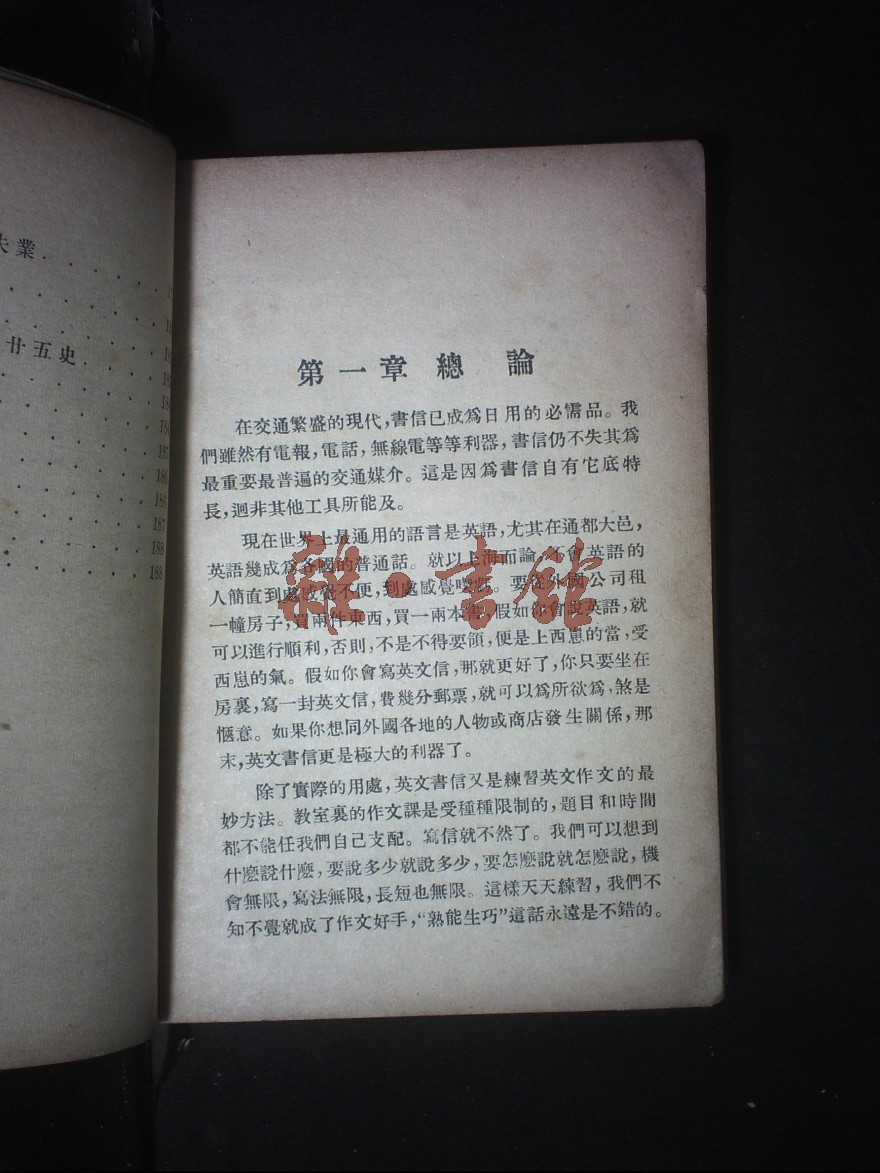 業
廿五史
184
187
188
186
187
188
188
第一章 總 論
在交通繁盛的現代，書信已成爲日用的必需品。我
們雖然有電報，電話，無線電等等利器，書信仍不失其爲
最重要最普遍的交通媒介。這是因爲書信自有它底特
長，迥非其他工具所能及。
現在世界上最通用的語言是英語，尤其在通都大邑，
英語幾成爲各國的普通話。就以上海而論，不會英語的
人簡直到處感覺不便，到處感覺。要從外國公司租
一幢房子，買兩件東西，買一兩本書，假如你會說英語，就
可以進行順利，否則，不是不得要領，便是上西崽的當，受
西崽的氣。假如你會寫英文信，那就更好了，你只要坐在
房裏，寫一封英文信，費幾分郵票，就可以爲所欲爲，煞是
愜意。如果你想同外國各地的人物或商店發生關係，那
末，英文書信更是極大的利器了。
除了實際的用處，英文書信又是練習英文作文的最
妙方法。教室裏的作文課是受種種限制的，題目和時間
都不能任我們自己支配。寫信就不然了。我們可以想到
什麽說什麽，要說多少就說多少，要怎麽說就怎麽說，機
會無限，寫法無限，長短也無限。這樣天天練習，我們不
知不覺就成了作文好手，“熟能生巧”這話永遠是不錯的。
雜·書館